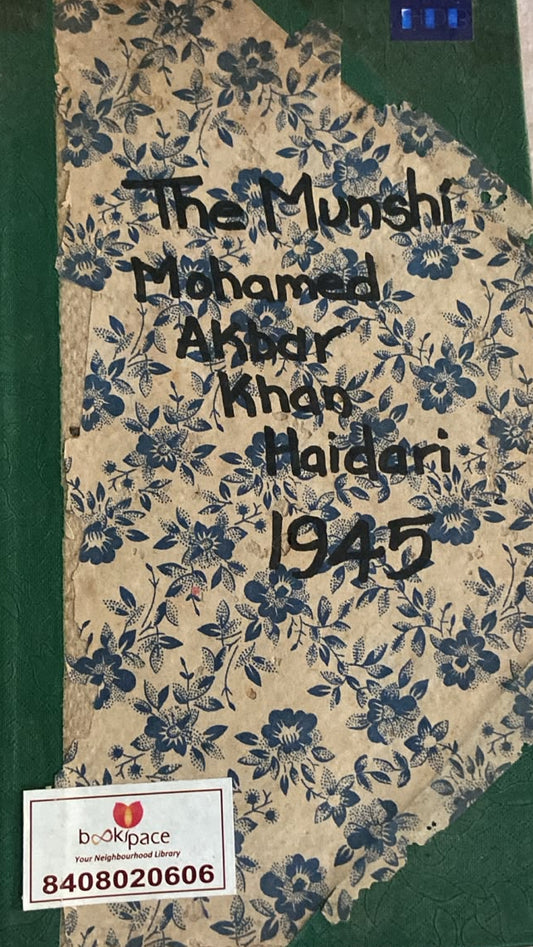 The Munshi
Mohamed
Akbar
Khan
Haidari
1945
bookspace
Your Neighbourhood Library
8408020606